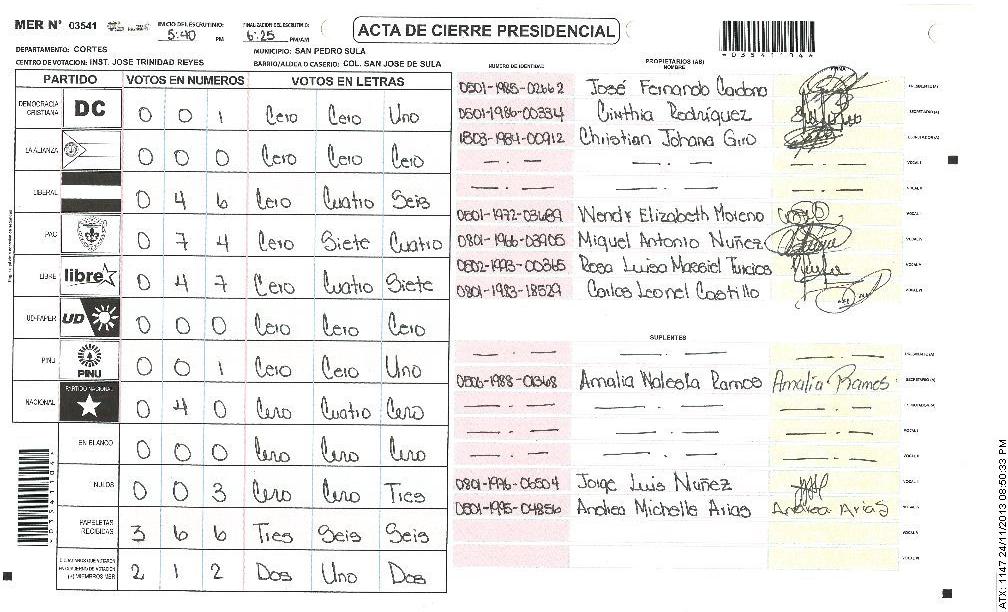 MER N° 03541
INICIO DEL ESCRUTINIO: 5:40 PM
FINALIZACION DEL ESCRUTINIO: 6:25 PM/AM
ACTA DE CIERRE PRESIDENCIAL
DEPARTAMENTO: CORTES
MUNICIPIO: SAN PEDRO SULA
CENTRO DE VOTACION: INST. JOSE TRINIDAD REYES
BARRIO/ALDEA O CASERIO: COL. SAN JOSE DE SULA
PARTIDO VOTOS EN NUMEROS VOTOS EN LETRAS
DEMOCRACIA CRISTIANA DC 0 0 1 Cero Cero Uno
LA ALIANZA 0 0 0 Cero Cero Cero
LIBERAL 0 4 6 Cero Cuatro Seis
PAC 0 7 4 Cero Siete Cuatro
LIBRE libre 0 4 7 Cero Cuatro Siete
UD-FAPER UD 0 0 0 Cero Cero Cero
PINU PINU 0 0 1 Cero Cero Uno
NACIONAL PARTIDO NACIONAL 0 4 0 Cero Cuatro Cero
EN BLANCO 0 0 0 Cero Cero Cero
NULOS 0 0 3 Cero Cero Tres
PAPELETAS RECIBIDAS 3 6 6 Tres Seis Seis
(+) MIEMBROS MER 2 1 2 Dos Uno Dos
NUMERO DE IDENTIDAD
PROPIETARIOS (AS)
NOMBRE
0501-1985-02662 José Fernando Cardona
0501-1986-00334 Cinthia Rodríguez
1803-1984-00912 Christian Johana Giro
0501-1972-03689 Wendy Elizabeth Moreno
0801-1966-03905 Miguel Antonio Nuñez
0502-1993-00365 Rosa Luisa Massiel Turcios
0801-1983-18529 Carlos Leonel Castillo
SUPLENTES
0506-1988-01368 Amalia Ramos Amalia Ramos
0801-1996-06504 Jorge Luis Nuñez
0501-1995-04856 Andrea Michelle Arias Andrea Arias
ATX: 1147 24/11/2013 08:50:33 PM